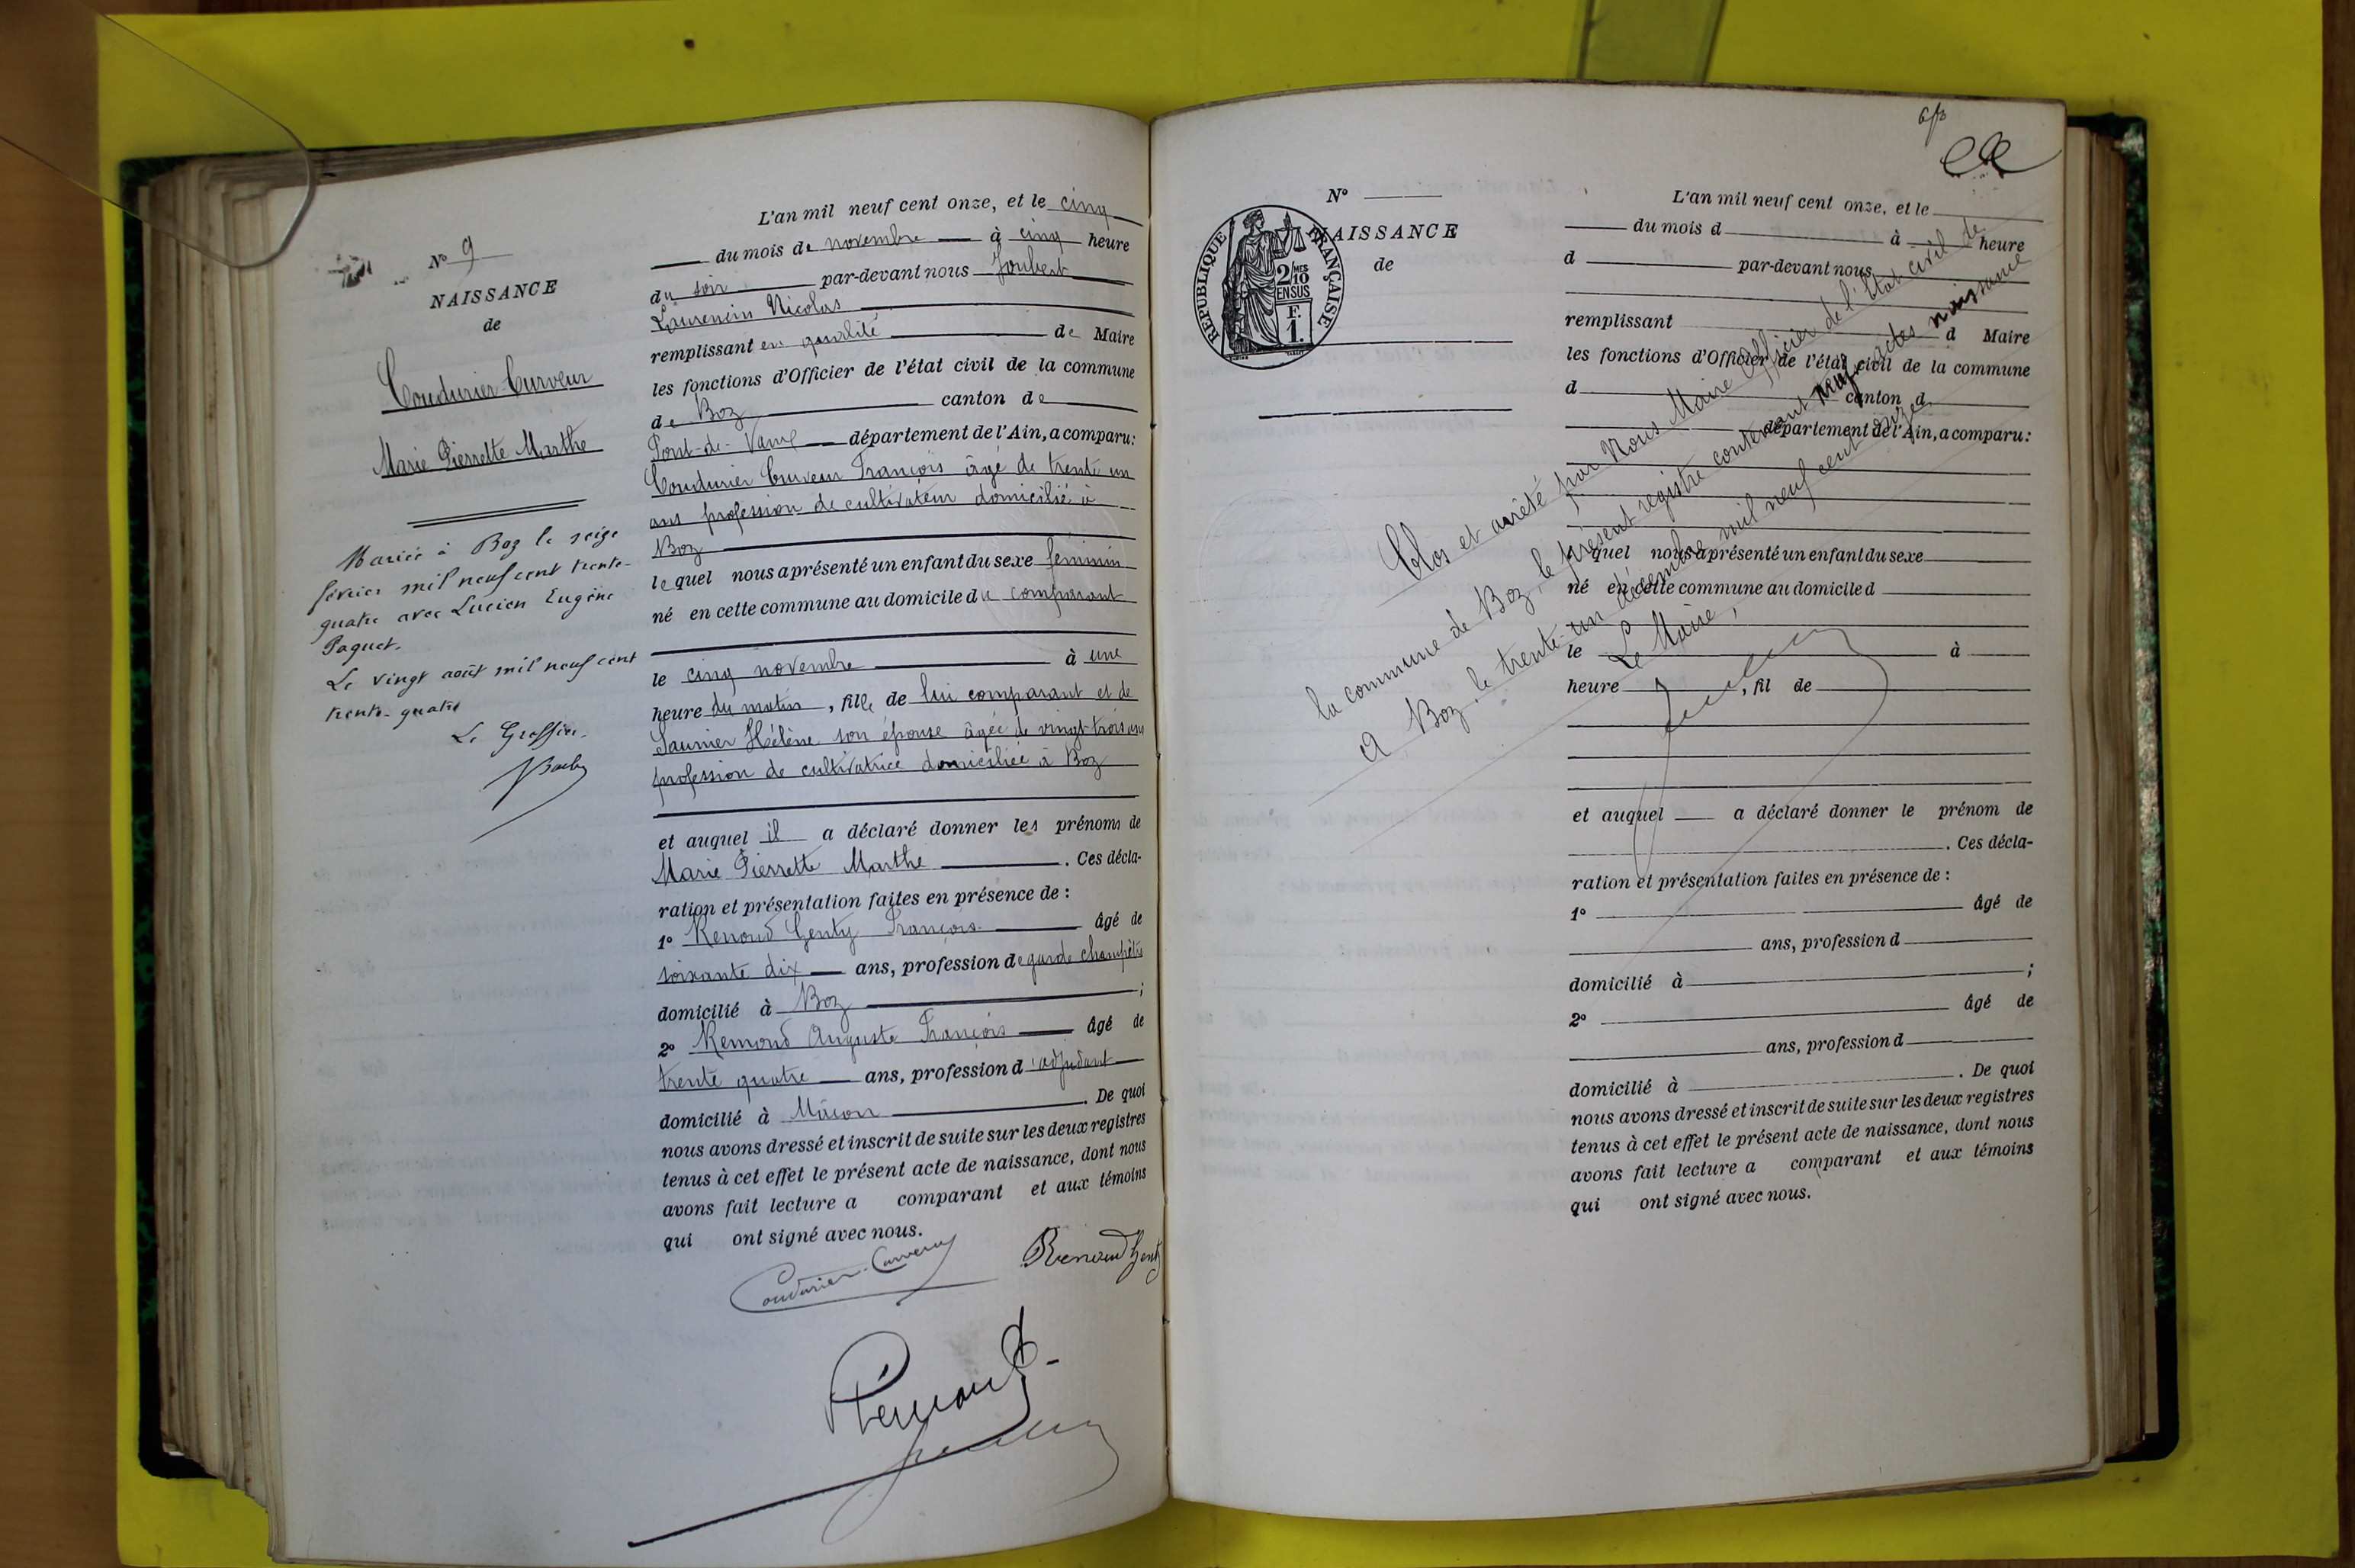 N° 9
NAISSANCE
de
Coudurier Curveur
Marie Pierrette Marthe
Mariée à Boz le seize
février mil neuf cent trente-
quatre avec Lucien Eugène
Paquet.
Le vingt août mil neuf cent
trente-quatre
Le Greffier.
L'an mil neuf cent onze, et le cinq
du mois de novembre à cinq heure
du soir par-devant nous Joubert
Laurencin Nicolas
remplissant en qualité de Maire
les fonctions d'Officier de l'état civil de la commune
de Boz canton de
Pont-de-Vaux département de l'Ain, a comparu:
Coudurier Curveur François âgé de trente un
ans profession de cultivateur domicilié à
Boz
lequel nous a présenté un enfant du sexe féminin
né en cette commune au domicile du comparant
le cinq novembre à une
heure du matin, fille de lui comparant et de
Saunier Hélène son épouse âgée de vingt-trois ans
profession de cultivatrice domiciliée à Boz
et auquel il a déclaré donner les prénoms de
Marie Pierrette Marthe. Ces décla-
ration et présentation faites en présence de:
1° Renoud Genty François âgé de
soixante dix ans, profession de garde champêtre
domicilié à Boz;
2° Remond Auguste François âgé de
trente quatre ans, profession d'adjudant
domicilié à Mâcon. De quoi
nous avons dressé et inscrit de suite sur les deux registres
tenus à cet effet le présent acte de naissance, dont nous
avons fait lecture a comparant et aux témoins
qui ont signé avec nous.
Coudurier-Curveur
Renoud Genty
Rémond
N°
NAISSANCE
de
RÉPUBLIQUE FRANÇAISE
2/10 MES
EN SUS
F.
1.
L'an mil neuf cent onze, et le
du mois d à heure
d par-devant nous
remplissant d Maire
les fonctions d'Officier de l'état civil de la commune
d canton d
département de l'Ain, a comparu:
quel nous a présenté un enfant du sexe
né en cette commune au domicile d
le à
heure, fil de
et auquel a déclaré donner le prénom de
. Ces décla-
ration et présentation faites en présence de:
1° âgé de
ans, profession d
domicilié à ;
2° âgé de
ans, profession d
domicilié à . De quoi
nous avons dressé et inscrit de suite sur les deux registres
tenus à cet effet le présent acte de naissance, dont nous
avons fait lecture a comparant et aux témoins
qui ont signé avec nous.
Clos et arrêté par Nous Maire Officier de l'état civil de
la commune de Boz, le présent registre contenant neuf actes naissance
A Boz, le trente-un décembre mil neuf cent onze.
Le Maire,